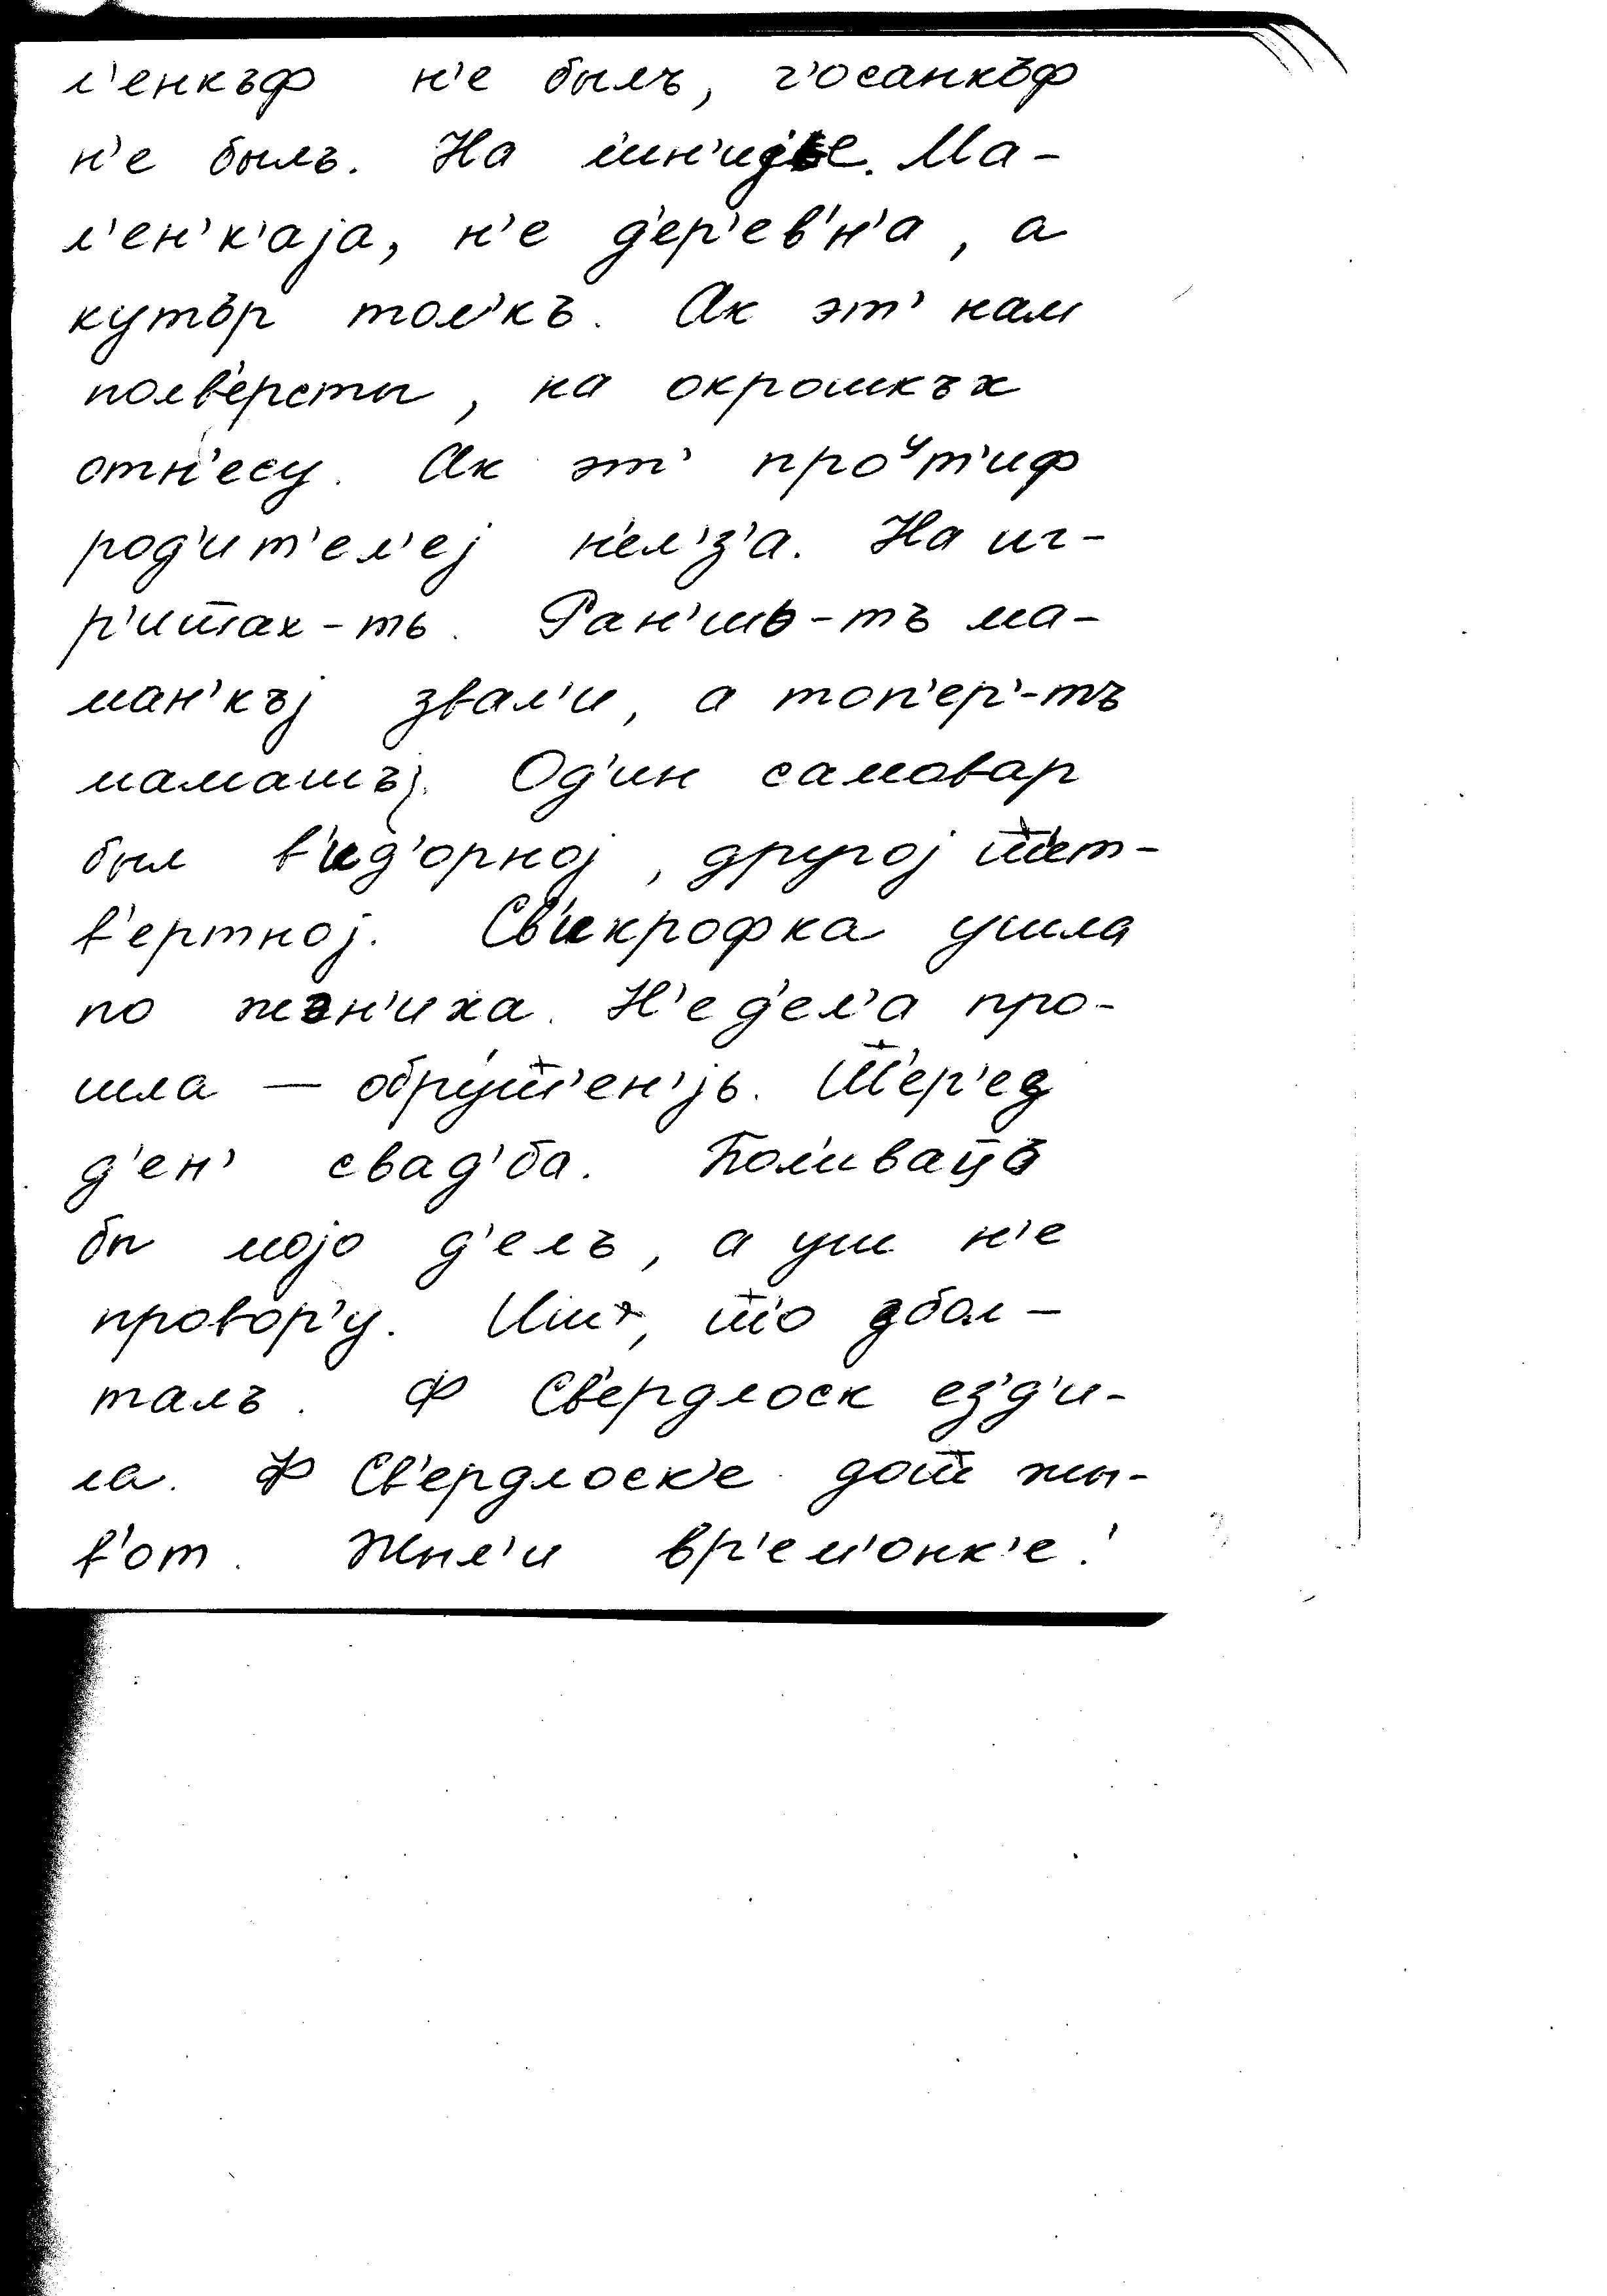 л'енкъф н'е былъ, г'осанкъф
н'е былъ. На Ма-
л'ен'к'аjа, н'е д'ер'ев'н'а, а
кутър тол'къ. Ак эт' нам
полв'ерсты, на окрошкъх
отн'есу. Ак эт' про^ут'иф
род'ит'ел'еj н'ел'з'а. На иг-
р'ишах-тъ. Ран'шъ-тъ ма-
ман'къj звал'и, а топ'ер'-тъ
мамашъj. Од'ин самовар
был в'ид'орноj, другоj ш'ет-
в'ертноj. Св'икрофка ушла
по жэн'иха. Н'ед'ел'а про-
шла — обруш'ен'jь. Ш'ер'ез
д'ен' свад'ба. Пол'ивацъ
бы моjо д'елъ, а уш н'е
провор'у. Иш, ш'о збол-
талъ. Ф Св'ердлоск ез'д'и-
ла. Ф Св'ердлоск'е дош жы-
в'от. Жыл'и вр'ем'онк'е!